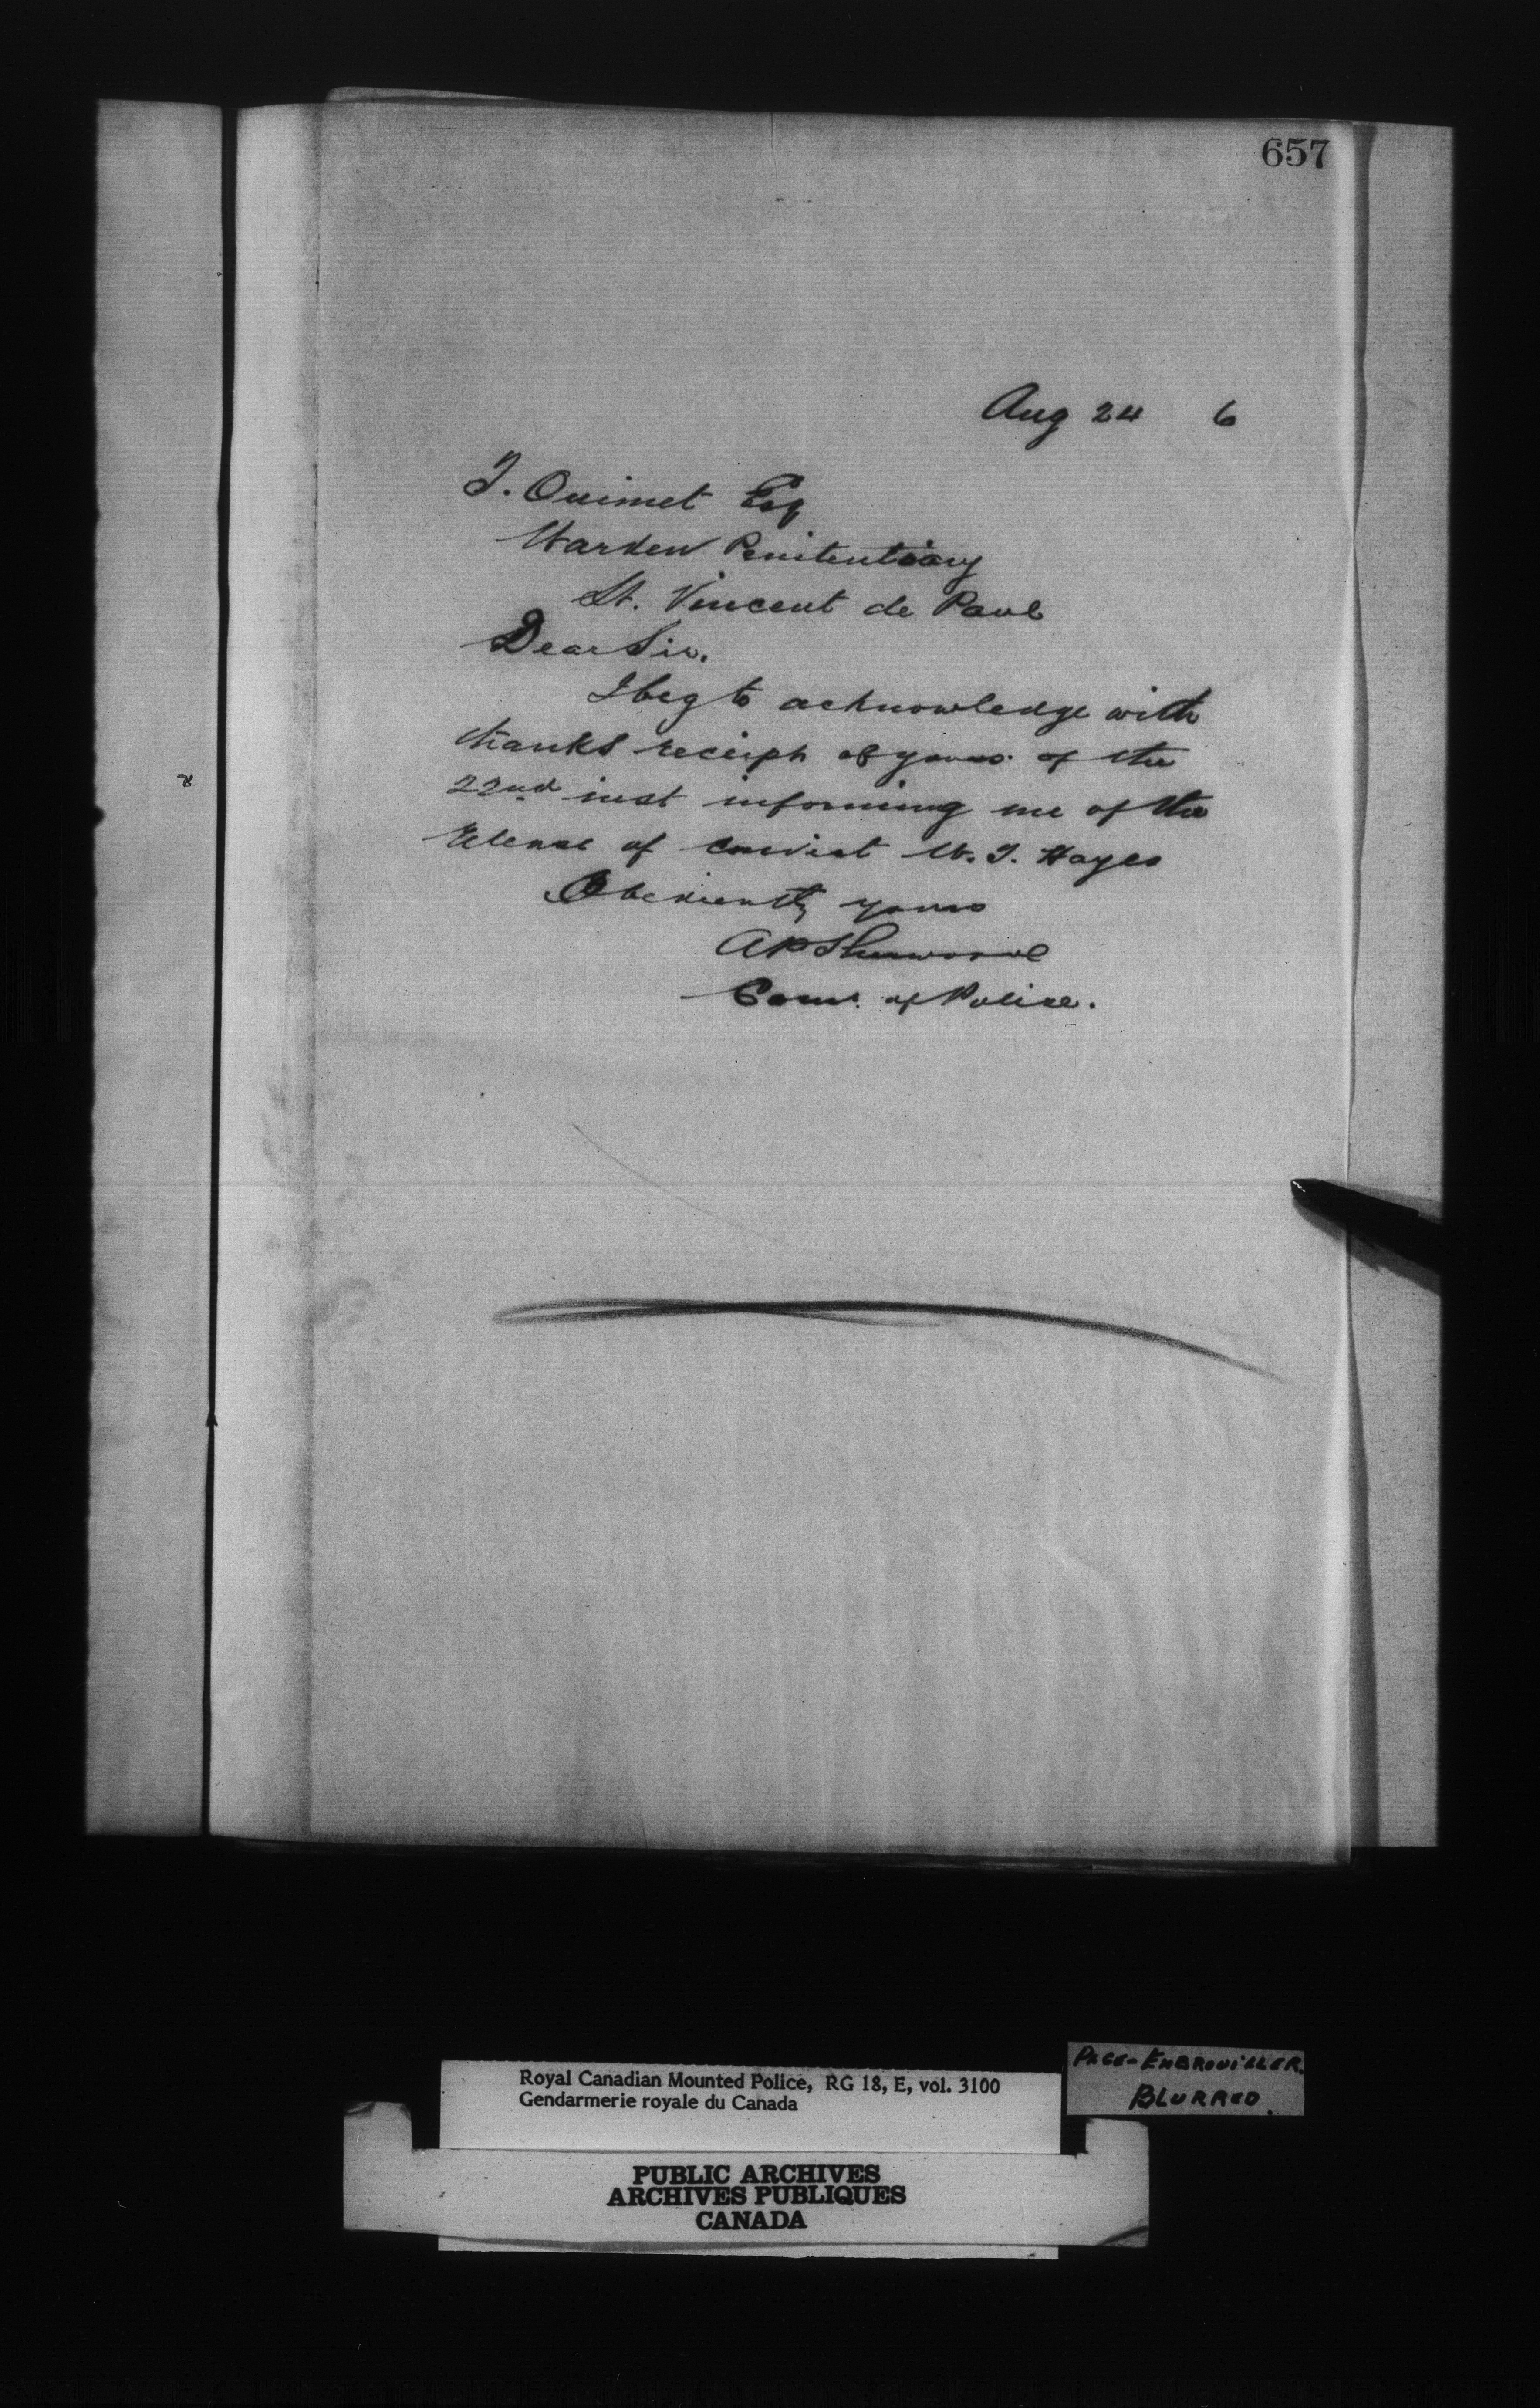 657
Aug 24 6
T. Ouimet Esq
Warden Penitentiary
St. Vincent de Paul
Dear Sir.
I beg to acknowledge with
thanks receipt of yours of the
22nd inst informing me of the
release of convict W. T. Hayes
Obediently yours
A P Sherwood
Comr. of Police.
Royal Canadian Mounted Police, RG 18, E, vol. 3100
Gendarmerie royale du Canada
PAGE-EMBROUILLER.
BLURRED.
PUBLIC ARCHIVES
ARCHIVES PUBLIQUES
CANADA